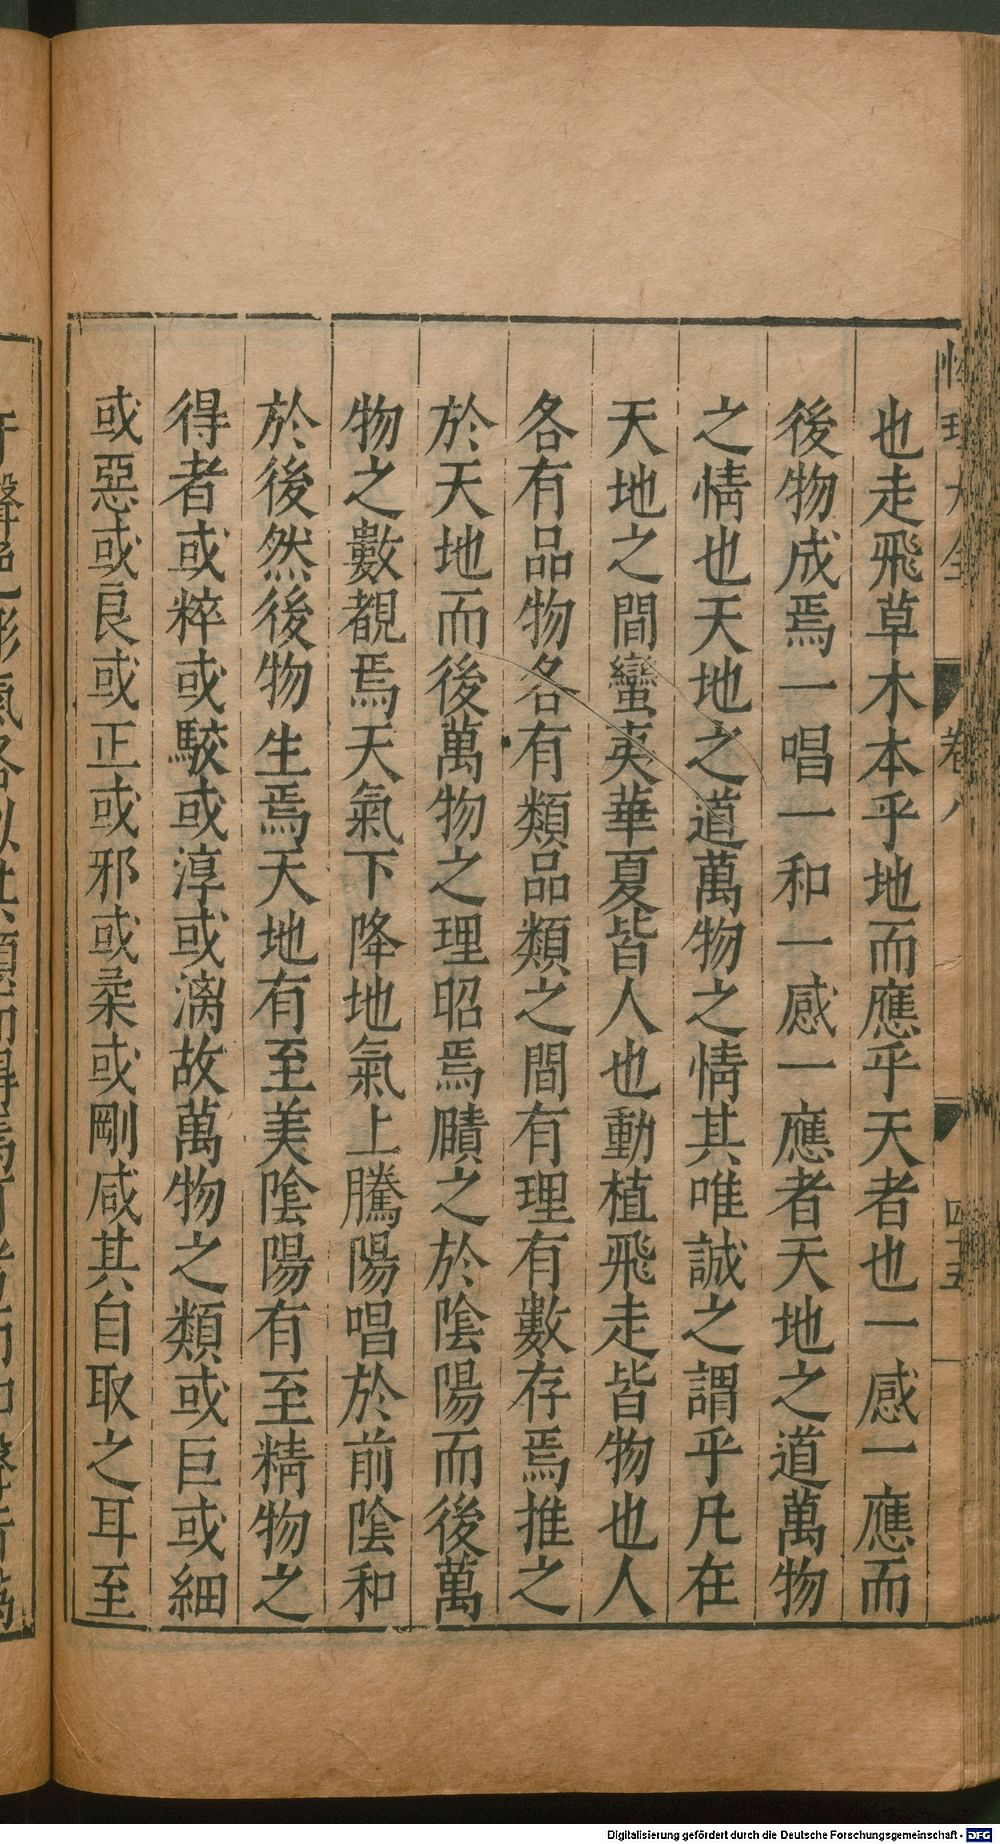 性理大全 卷八 四十五
也走飛草木本乎地而應乎天者也一感一應而
後物成焉一唱一和一感一應者天地之道萬物
之情也天地之道萬物之情其唯誠之謂乎凡在
天地之間蠻夷華夏皆人也動植飛走皆物也人
各有品物各有類品類之間有理有數存焉推之
於天地而後萬物之理昭焉賾之於陰陽而後萬
物之數覩焉天氣下降地氣上騰陽唱於前陰和
於後然後物生焉天地有至美陰陽有至精物之
得者或粹或駮或淳或漓故萬物之類或巨或細
或惡或良或正或邪或柔或剛咸其自取之耳至
Digitalisierung gefördert durch die Deutsche Forschungsgemeinschaft - DFG